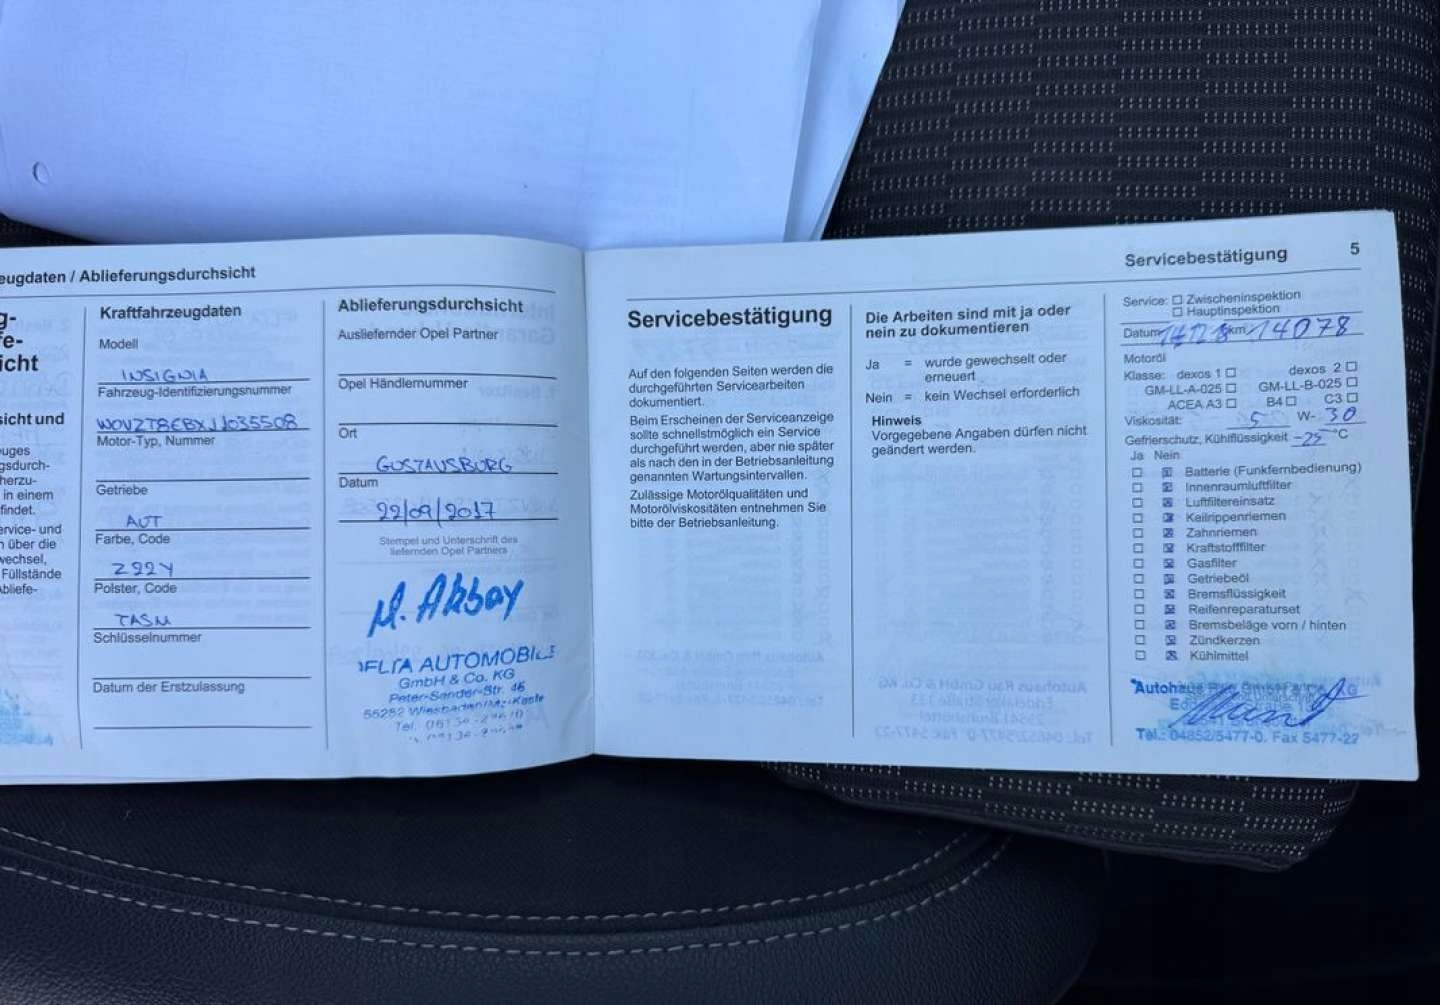 eugdaten / Ablieferungsdurchsicht
g-
fe-
icht
sicht und
uges
gsdurch-
herzu-
in einem
findet.
ervice- und
n über die
wechsel,
Füllstände
bliefe-
Kraftfahrzeugdaten
Modell
INSIGNIA
Fahrzeug-Identifizierungsnummer
W0VZT8EBXJ1035508
Motor-Typ, Nummer
Getriebe
AUT
Farbe, Code
Z99Y
Polster, Code
TASM
Schlüsselnummer
Datum der Erstzulassung
Ablieferungsdurchsicht
Ausliefernder Opel Partner
Opel Händlernummer
Ort
GUSTAVSBURG
Datum
22/09/2017
Stempel und Unterschrift des
liefernden Opel Partners
M. Akbay
AUTOMOBILE
GmbH & Co. KG
Peter-Sander-Str.
55252 Wiesbaden/Mz.-Kastel
Tel.
Servicebestätigung 5
Servicebestätigung
Auf den folgenden Seiten werden die
durchgeführten Servicearbeiten
dokumentiert.
Beim Erscheinen der Serviceanzeige
sollte schnellstmöglich ein Service
durchgeführt werden, aber nie später
als nach den in der Betriebsanleitung
genannten Wartungsintervallen.
Zulässige Motorölqualitäten und
Motorölviskositäten entnehmen Sie
bitte der Betriebsanleitung.
Die Arbeiten sind mit ja oder
nein zu dokumentieren
Ja = wurde gewechselt oder
erneuert
Nein = kein Wechsel erforderlich
Hinweis
Vorgegebene Angaben dürfen nicht
geändert werden.
Service: Zwischeninspektion
Hauptinspektion
Datum km 14078
Motoröl
Klasse: dexos 1 dexos 2
GM-LL-A-025 GM-LL-B-025
ACEA A3 B4 C3
Viskosität: 5 W- 30
Gefrierschutz, Kühlflüssigkeit -25 °C
Ja Nein
Batterie (Funkfernbedienung)
Innenraumluftfilter
Luftfiltereinsatz
Keilrippenriemen
Zahnriemen
Kraftstofffilter
Gasfilter
Getriebeöl
Bremsflüssigkeit
Reifenreparaturset
Bremsbeläge vorn / hinten
Zündkerzen
Kühlmittel
Autohaus Rau GmbH & Co. KG
Tel.: 04852/5477-0. Fax 5477-22